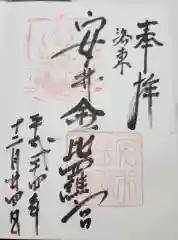 奉拝
洛東
安井金比羅宮
平成二十四年
十二月廿四日